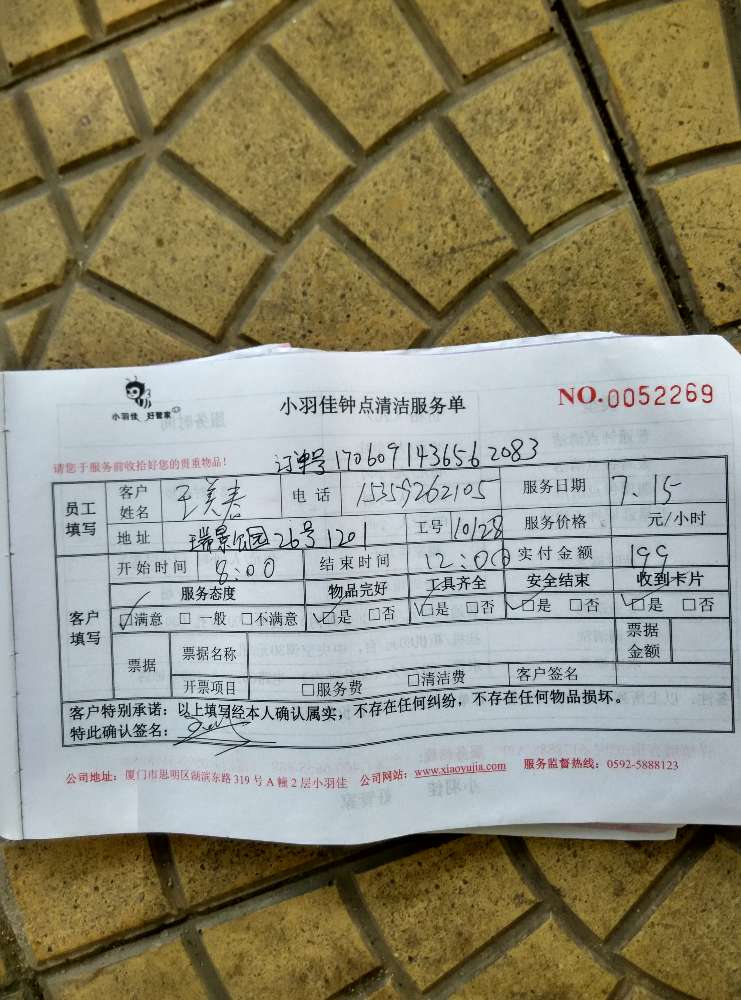 小羽佳 好管家
小羽佳钟点清洁服务单
NO.0052269
请您于服务前收拾好您的贵重物品!
订单号 170609143656 2083
员工填写 客户姓名 王美春 电话 15359262105 服务日期 7.15
地址 瑞景公园26号1201 工号 10128 服务价格 元/小时
客户填写 开始时间 8:00 结束时间 12:00 实付金额 199
服务态度 物品完好 工具齐全 安全结束 收到卡片
☑满意 □一般 □不满意 ☑是 □否 ☑是 □否 ☑是 □否 ☑是 □否
票据 票据名称 票据金额
开票项目 □服务费 □清洁费 客户签名
客户特别承诺:以上填写经本人确认属实,不存在任何纠纷,不存在任何物品损坏。
特此确认签名:
公司地址:厦门市思明区湖滨东路 319 号 A 幢 2 层小羽佳 公司网站:www.xiaoyujia.com 服务监督热线:0592-5888123